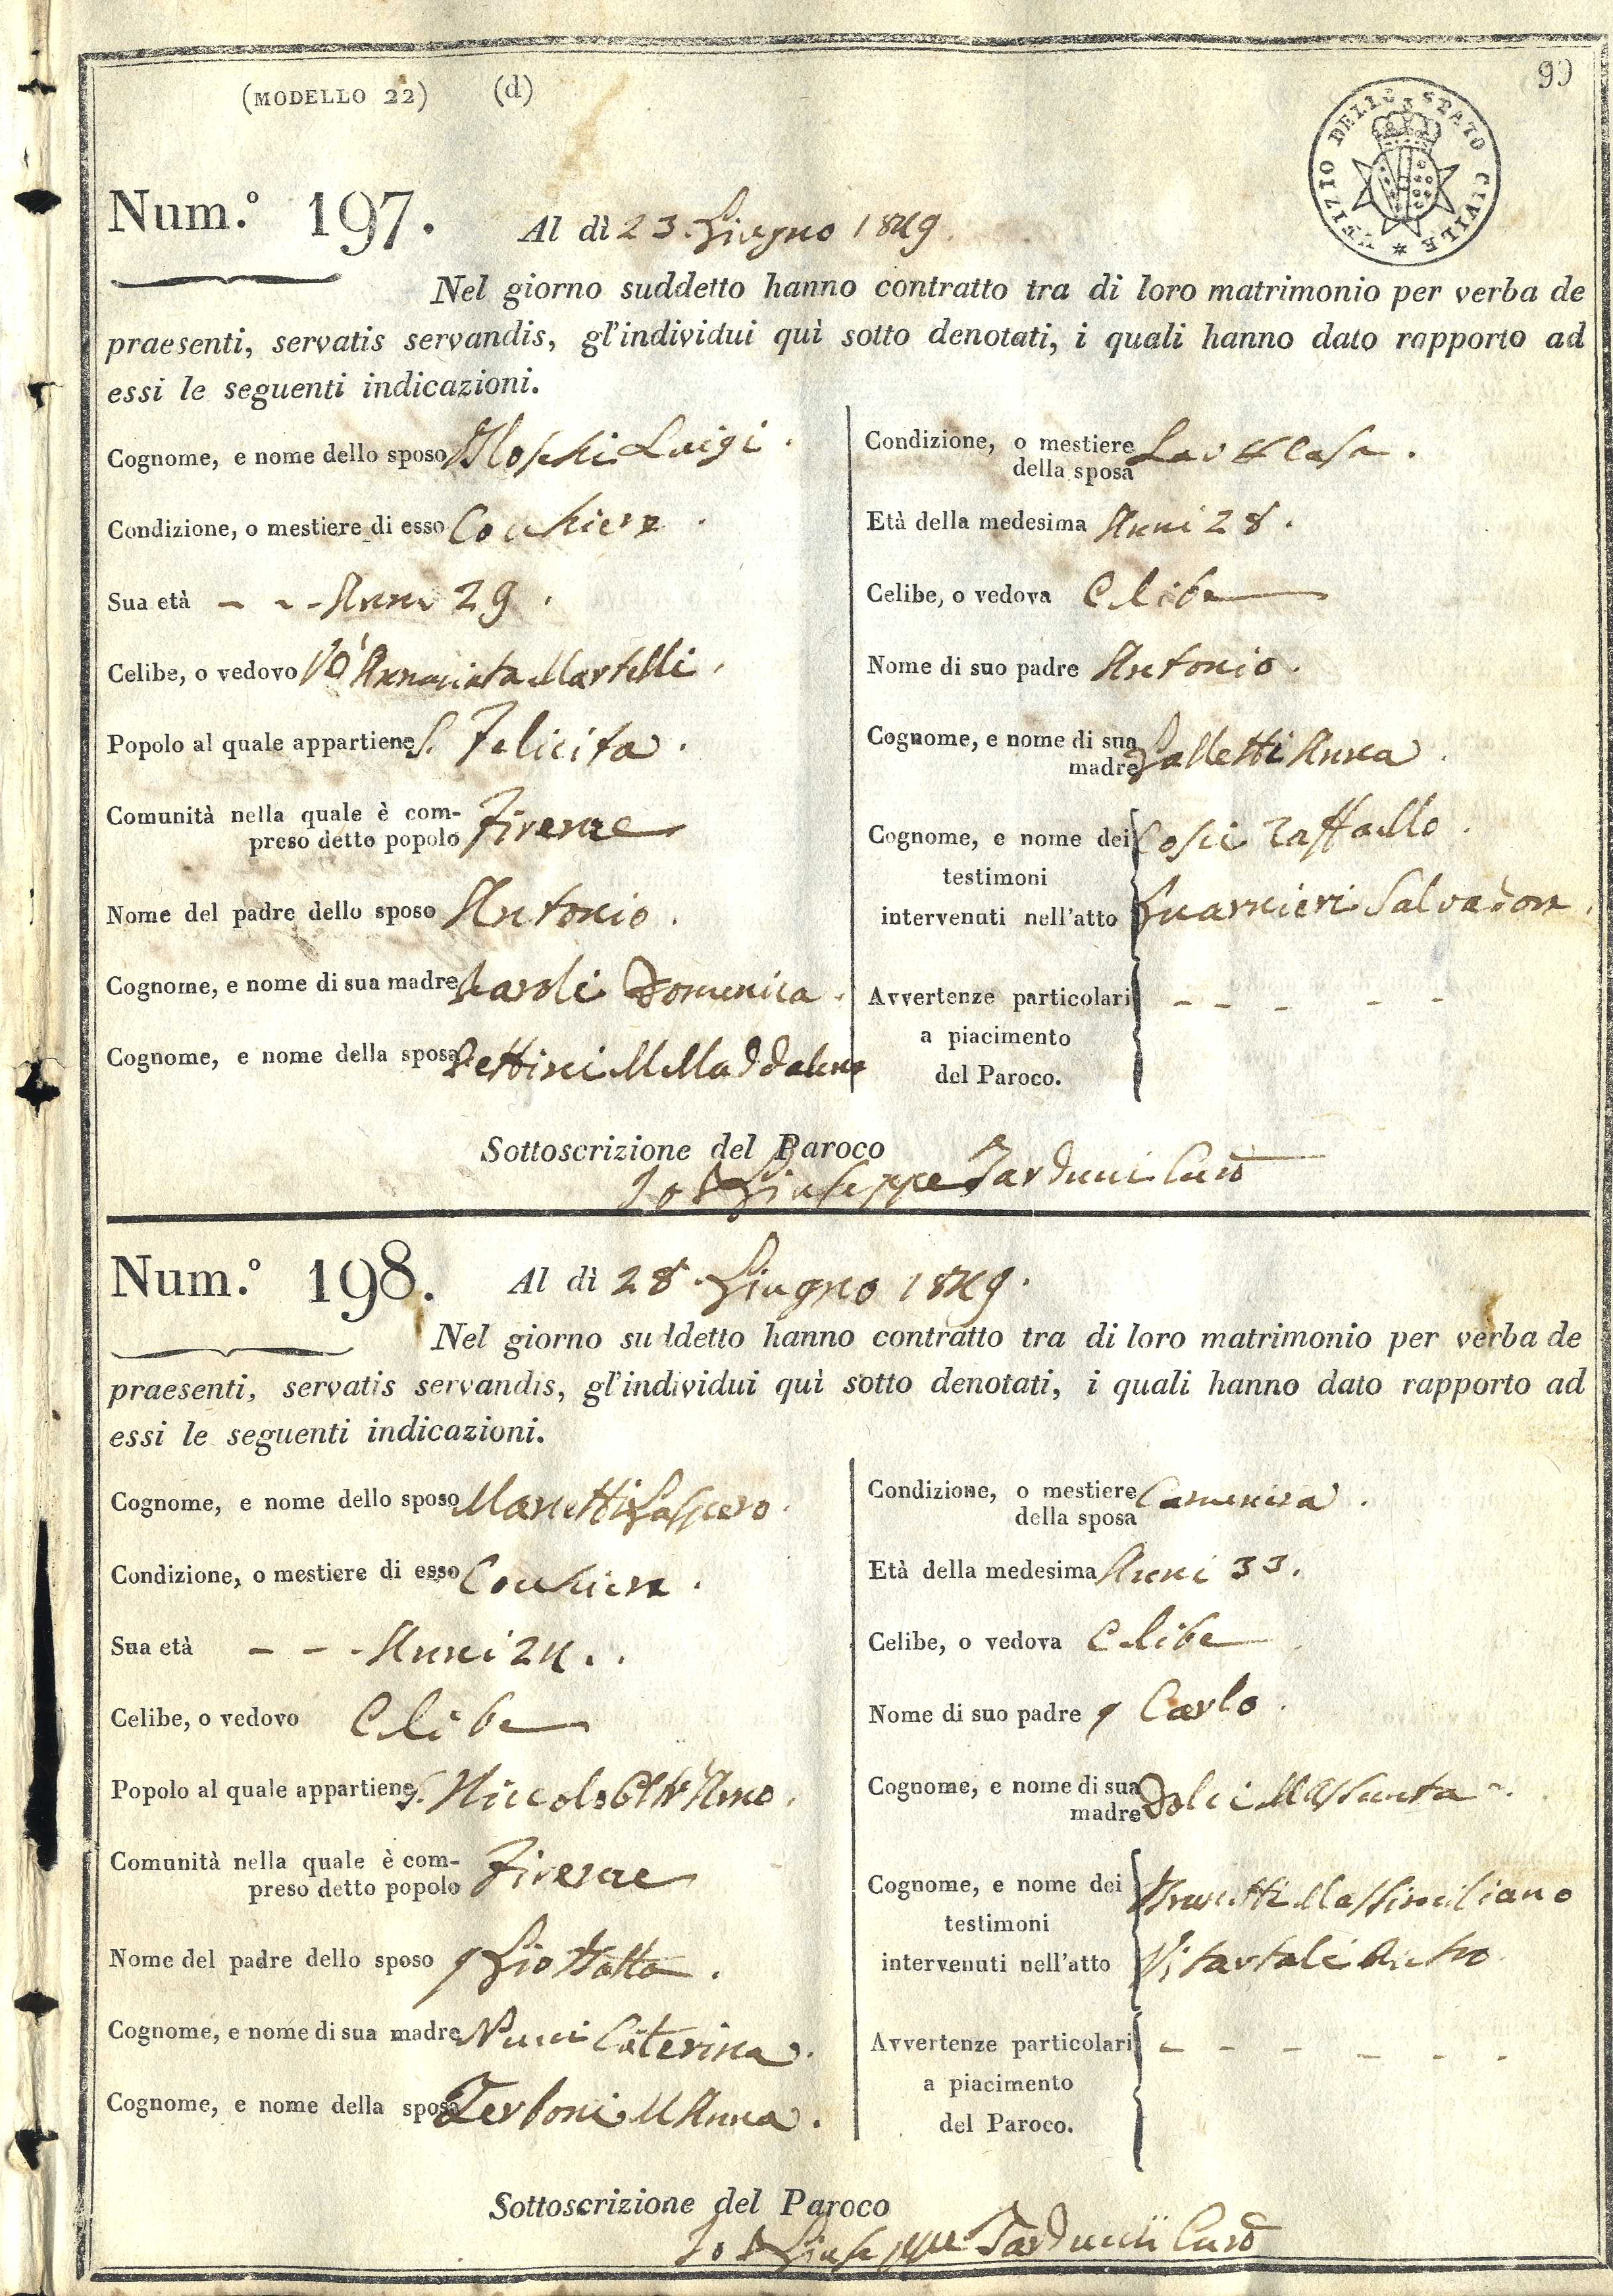 (MODELLO 22) (d)
99
UFIZIO DELLO STATO CIVILE *
Num.º 197. Al dì 23. Giugno 1849.
Nel giorno suddetto hanno contratto tra di loro matrimonio per verba de
praesenti, servatis servandis, gl'individui quì sotto denotati, i quali hanno dato rapporto ad
essi le seguenti indicazioni.
Cognome, e nome dello sposo Moschi Luigi.
Condizione, o mestiere di esso Cocchiere.
Sua età - - - Anni 29.
Celibe, o vedovo Vº Annunciata Martelli.
Popolo al quale appartiene S. Felicita.
Comunità nella quale è com-
preso detto popolo Firenze
Nome del padre dello sposo Antonio.
Cognome, e nome di sua madre Domenica.
Cognome, e nome della sposa Pettini M Maddalena
Condizione, o mestiere
della sposa Casa.
Età della medesima Anni 28.
Celibe, o vedova Celibe
Nome di suo padre Antonio.
Cognome, e nome di sua
madre Galletti Anna.
Cognome, e nome dei Cosci Raffaello.
testimoni
intervenuti nell'atto Guarnieri Salvadore.
Avvertenze particolari - - - - -
a piacimento
del Paroco.
Sottoscrizione del Paroco
Io D Giuseppe Tarducci Curº
Num.º 198. Al dì 28. Giugno 1849.
Nel giorno suddetto hanno contratto tra di loro matrimonio per verba de
praesenti, servatis servandis, gl'individui quì sotto denotati, i quali hanno dato rapporto ad
essi le seguenti indicazioni.
Cognome, e nome dello sposo Manetti Gaspero.
Condizione, o mestiere di esso Cocchiere.
Sua età - - - Anni 24..
Celibe, o vedovo Celibe
Popolo al quale appartiene S. Niccolo Oltr'Arno.
Comunità nella quale è com-
preso detto popolo Firenze
Nome del padre dello sposo q Gio Batta.
Cognome, e nome di sua madre Nucci Caterina.
Cognome, e nome della sposa Zerboni M Anna.
Condizione, o mestiere
della sposa Cameriera.
Età della medesima Anni 33.
Celibe, o vedova Celibe
Nome di suo padre q Carlo.
Cognome, e nome di sua
madre Dolci M Assunta.
Cognome, e nome dei Brunetti Massimiliano
testimoni
intervenuti nell'atto Vitartali Pietro
Avvertenze particolari - - - - - -
a piacimento
del Paroco.
Sottoscrizione del Paroco
Io D Giuseppe Tarducci Curº